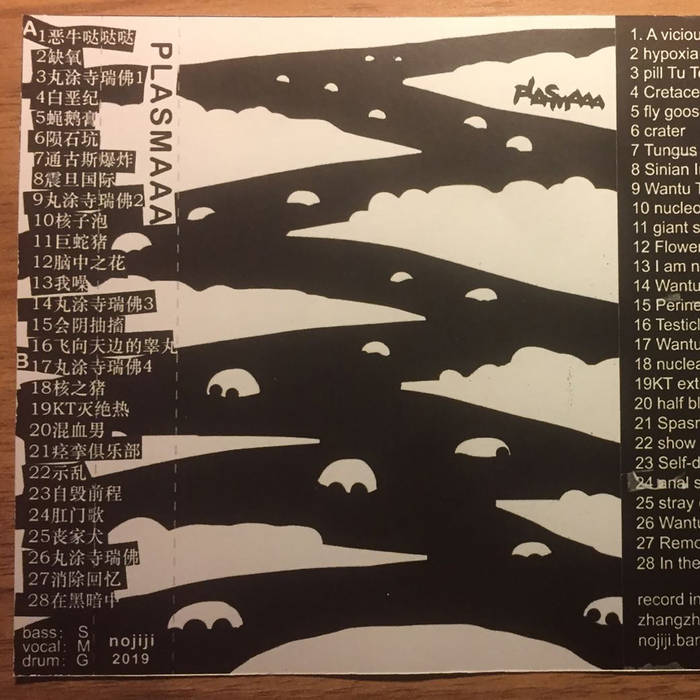 A
1恶牛哒哒哒
2缺氧
3丸涂寺瑞佛1
4白垩纪
5蝇鹅膏
6陨石坑
7通古斯爆炸
8震旦国际
9丸涂寺瑞佛2
10核子泡
11巨蛇猪
12脑中之花
13我噪
14丸涂寺瑞佛3
15会阴抽搐
16飞向天边的睾丸
B
17丸涂寺瑞佛4
18核之猪
19KT灭绝热
20混血男
21痉挛俱乐部
22示乱
23自毁前程
24肛门歌
25丧家犬
26丸涂寺瑞佛
27消除回忆
28在黑暗中
bass: S
vocal: M
drum: G
nojiji
2019
PLASMAAA
PLASMAAA
1. A viciou
2 hypoxia
3 pill Tu T
4 Cretace
5 fly goos
6 crater
7 Tungus
8 Sinian I
9 Wantu T
10 nucleo
11 giant s
12 Flower
13 I am n
14 Wantu
15 Perine
16 Testicl
17 Wantu
18 nuclea
19KT ext
20 half bl
21 Spasm
22 show
23 Self-d
24 anal s
25 stray
26 Wantu
27 Remo
28 In the
record in
zhangzh
nojiji.ban